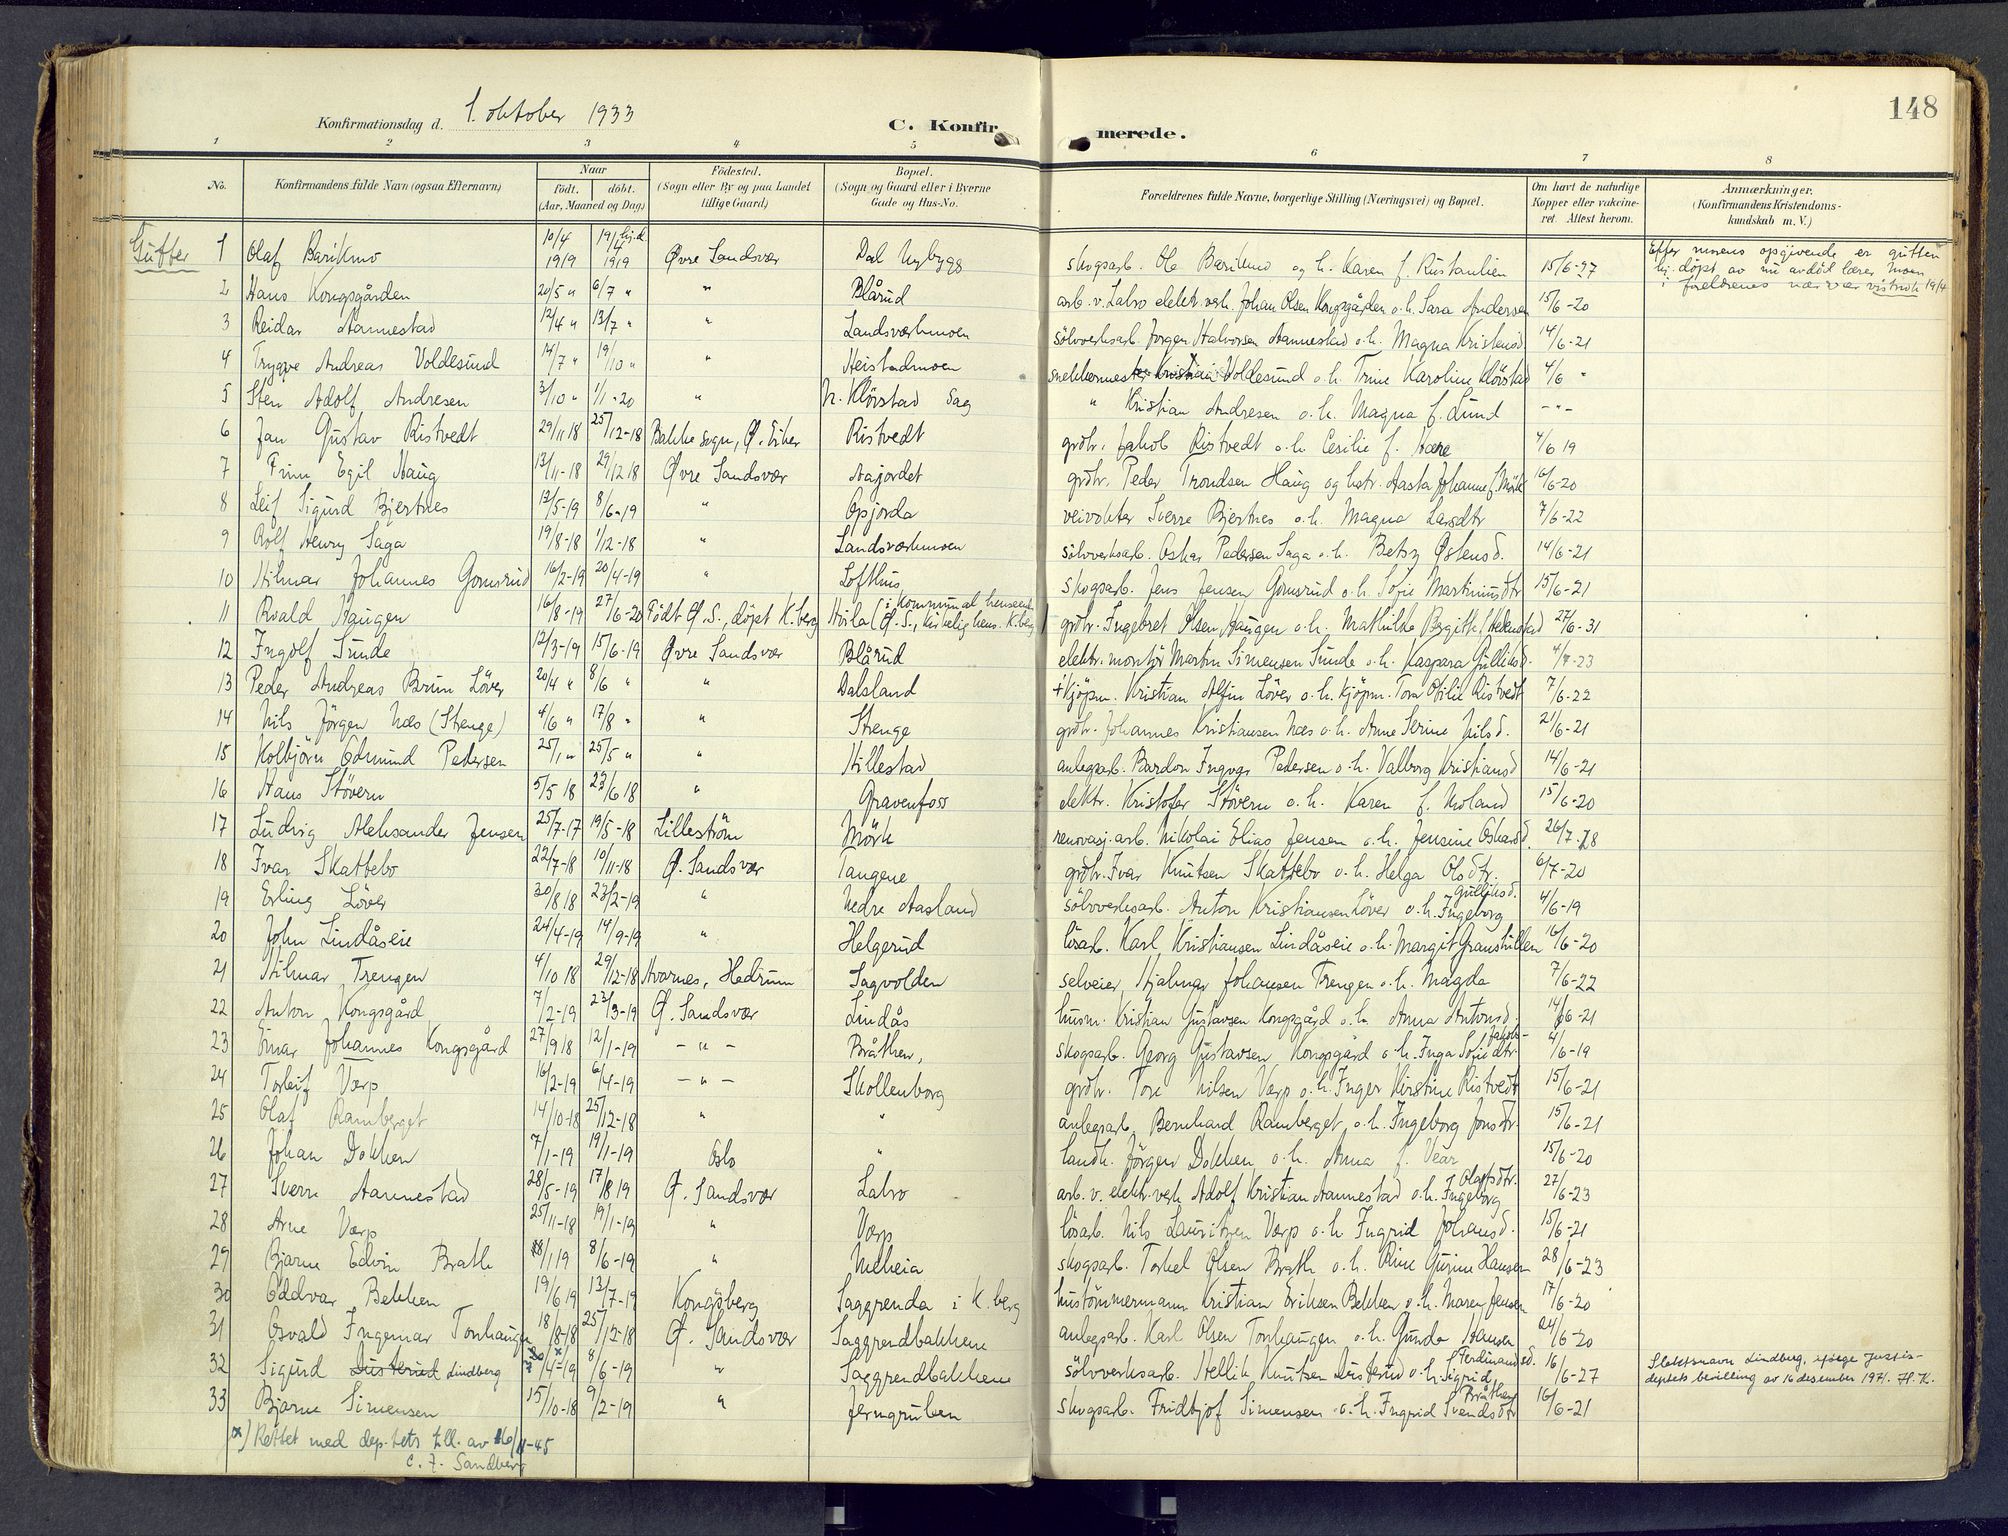 148
Konfirmationsdag d. 1. oktober 1933 C. Konfirmerede.
1 2 3 4 5 6 7 8
No. Konfirmandens fulde Navn (ogsaa Efternavn) Naar født. døbt. (Aar, Maaned og Dag) Fødested. (Sogn eller By og paa Landet tillige Gaard) Bopæl. (Sogn og Gaard eller i Byerne Gade og Hus-No. Forældrenes fulde Navne, borgerlige Stilling (Næringsvei) og Bopæl. Om havt de naturlige Kopper eller vakcineret. Attest herom. Anmærkninger. (Konfirmandens Kristendomskundskab m. V.)
Gutter 1 Olaf Barikmo 10/4 1919 19/4 hj.d. 1919 Øvre Sandsvær Dal Nybygg skogsarb. Ole Barikmo og h. Karen f. 15/6-27 Efter morens opgivende er gutten hj. døpt av nu avdød lærer Moen i foreldrenes nærvær 19/4
2 Hans Kongsgården 20/5 " 6/7 " " Blårud arb. v. Labro elektr. verk Johan Olsen Kongsgården o.h. Sara Andersen 15/6-20
3 Reidar Aannestad 12/4 " 13/7 " " Landsværkmoen sölvverksarb. Jørgen Halvorsen Aannestad o.h. Magna Kristensd. 14/6-21
4 Trygve Andreas Voldesund 14/7 " 19/10 " " Heistadmoen snekkermester Kristian Voldesund o.h. Trine Karoline Klövstad 4/6 "
5 Sten Adolf Andresen 3/10 " 1/1-20 " N. Klövstad Sag " Kristian Andresen o.h. Magna f. Lund -"-
6 Jan Gustav Ristvedt 29/11 18 25/12-18 Bakke sogn, Ø. Eiker Ristvedt grdbr. Jakob Ristvedt o.h. Cecilie f. 4/6 19
7 Finn Egil Haug 13/11-18 29/12 18 Øvre Sandsvær Aajordet grdbr. Peder Trondsen Haug og hstr. Aasta Johanne f. Mörk 16/6-20
8 Leif Sigurd Bjertnes 12/5-19 8/6-19 " Opjorda veivokter Sverre Bjertnes o.h. Magna Larsdtr 7/6-22
9 Rolf Henry Saga 19/8-18 1/12-18 " Landsværkmoen sölvverksarb. Oskar Pedersen Saga o.h. Betsy Østensd. 14/6-21
10 Hilmar Johannes Gomsrud 16/2-19 20/4-19 " Lofthus skogsarb. Jens Jensen Gomsrud o.h. Sofie Martinusdtr 15/6-21
11 Roald Haugen 16/8-19 27/6-20 Födt Ø.S., döpt K.berg Hvila (i kommunal henseende Ø.S., kirkelig hens. K.berg) grdbr. Ingebret Olsen Haugen o.h. Mathilde Birgitte Heknstad 27/6-31
12 Ingolf Sunde 12/3-19 15/6-19 Øvre Sandsvær Blårud elektr. montør Martin Simensen Sunde o.h. Kaspara Gulliksd. 4/7-23
13 Peder Andreas Brun Löver 20/4 " 8/6 " " Dalsland + Kjöpm. Kristian Alfin Löver o.h. kjöpm. Tora Otilie Ristvedt 7/6-22
14 Nils Jörgen Næs (Stenge) 4/6 " 17/8 " " Stenge grdbr. Johannes Kristiansen Næs o.h. Anne Serine Nilsd. 21/6-21
15 Kolbjörn Edmund Pedersen 25/1 " 25/5 " " Hillestad anlegsarb. Bardon Ingvgr Pedersen o.h. Valborg Kristiansd 14/6-21
16 Hans Stövern 5/5 18 23/6 18 " Gravenfoss elektr. Kristofer Stövern o.h. Karen f. Moland 15/6-20
17 Ludvig Aleksander Jensen 25/7-17 19/5-18 Lilleström Mörk renovasj.arb. Nikolai Elias Jensen o.h. Jensine Oskarsd. 26/7-28
18 Ivar Skattebo 22/7-18 10/11-18 Ø. Sandsvær Tangene grdbr. Ivar Knutsen Skattebo o.h. Helga Olsdtr. 6/7-20
19 Erling Löver 30/8 18 23/2-19 " Nedre Aasland sölvverksarb. Anton Kristiansen Löver o.h. Ingeborg Gulliksd. 4/6-19
20 John Lindåseie 24/4-19 14/9-19 " Helgerud lösarb. Karl Kristiansen Lindåseie o.h. Margit Granshillen 16/6-20
21 Hilmar Trengen 4/10 18 29/12-18 Hvarnes, Hedrum Sagvolden selveier Hjalmar Johansen Trengen o.h. Magda 7/6-22
22 Anton Kongsgård 7/2-19 23/3-19 Ø. Sandsvær Lindås husm. Kristian Gustavsen Kongsgård o.h. Anna Antonsd. 14/6-21
23 Einar Johannes Kongsgård 27/9 18 12/1-19 -"- Bråthen, skogsarb. Georg Gustavsen Kongsgård o.h. Inga Sofie Jakobsdtr 4/6-19
24 Torleif Værp 16/2-19 6/4-19 -"- Skollenborg grdbr. Tore Nilsen Værp o.h. Inger Kirstine Ristvedt 15/6-21
25 Olaf Ramberget 14/10-18 25/12-18 " " anlegsarb. Bernhard Ramberget o.h. Ingeborg Jonsdtr. 15/6-21
26 Johan Dokken 7/1-19 19/1-19 Oslo " landh. Jörgen Dokken o.h. Anna f. Vear 15/6-20
27 Sverre Aannestad 28/5-19 17/8 19 Ø. Sandsvær Labro arb. v. elektr. verk Adolf Kristian Aannestad o.h. Ingeborg Olafsdtr. 27/6-23
28 Arne Værp 25/11-18 19/1-19 " Værp lösarb. Nils Lauritzen Værp o.h. Ingrid Johansd. 15/6-21
29 Bjarne Edvin Brath 18/1 19 8/6-19 " Meheia skogsarb. Torkel Olsen Brath o.h. Rine Gurine Hansen 28/6-23
30 Oddvar Bekken 19/6 19 13/7-19 Kongsberg Saggrenda i K.berg hustömmermann Kristian Eriksen Bekken o.h. Maren Jensen 17/6-20
31 Osvald Ingemar Tonhaugen 18/8-18 25/12-18 Ø. Sandsvær Saggrendbakkene anlegsarb. Karl Olsen Tonhaugen o.h. Gunda Hansen 24/6-20
32 Sigurd Dusterud Lindberg x 20/4-19 8/6-19 " Saggrendbakkene sölvverksarb. Hellik Knutsen Dusterud o.h. Sigrid Ferdinandsd. 16/6-27 Slektsnavn Lindberg, ifølge Justisdeptets bevilling av 16 desember 1971. H.K.
33 Bjarne Simensen 15/10-18 9/2-19 " Jerngruben skogsarb. Fridtjof Simensen o.h. Ingrid Svendsdtr Bråthen 16/6-21
x) Rettet med dep.tets till. av 16/11-45
C. F. Sandberg